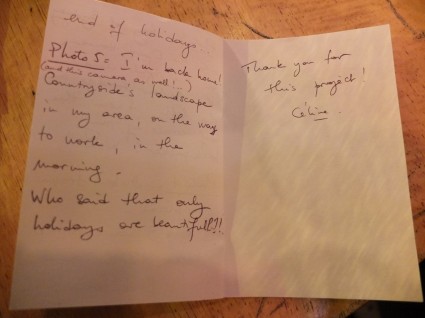 end of holidays...
Photo 5: I'm back home!
(and this camera as well!...)
Countryside's landscape
in my area, on the way
to work, in the
morning.
Who said that only
holidays are beautiful?!!
Thank you for
this project!
Céline.